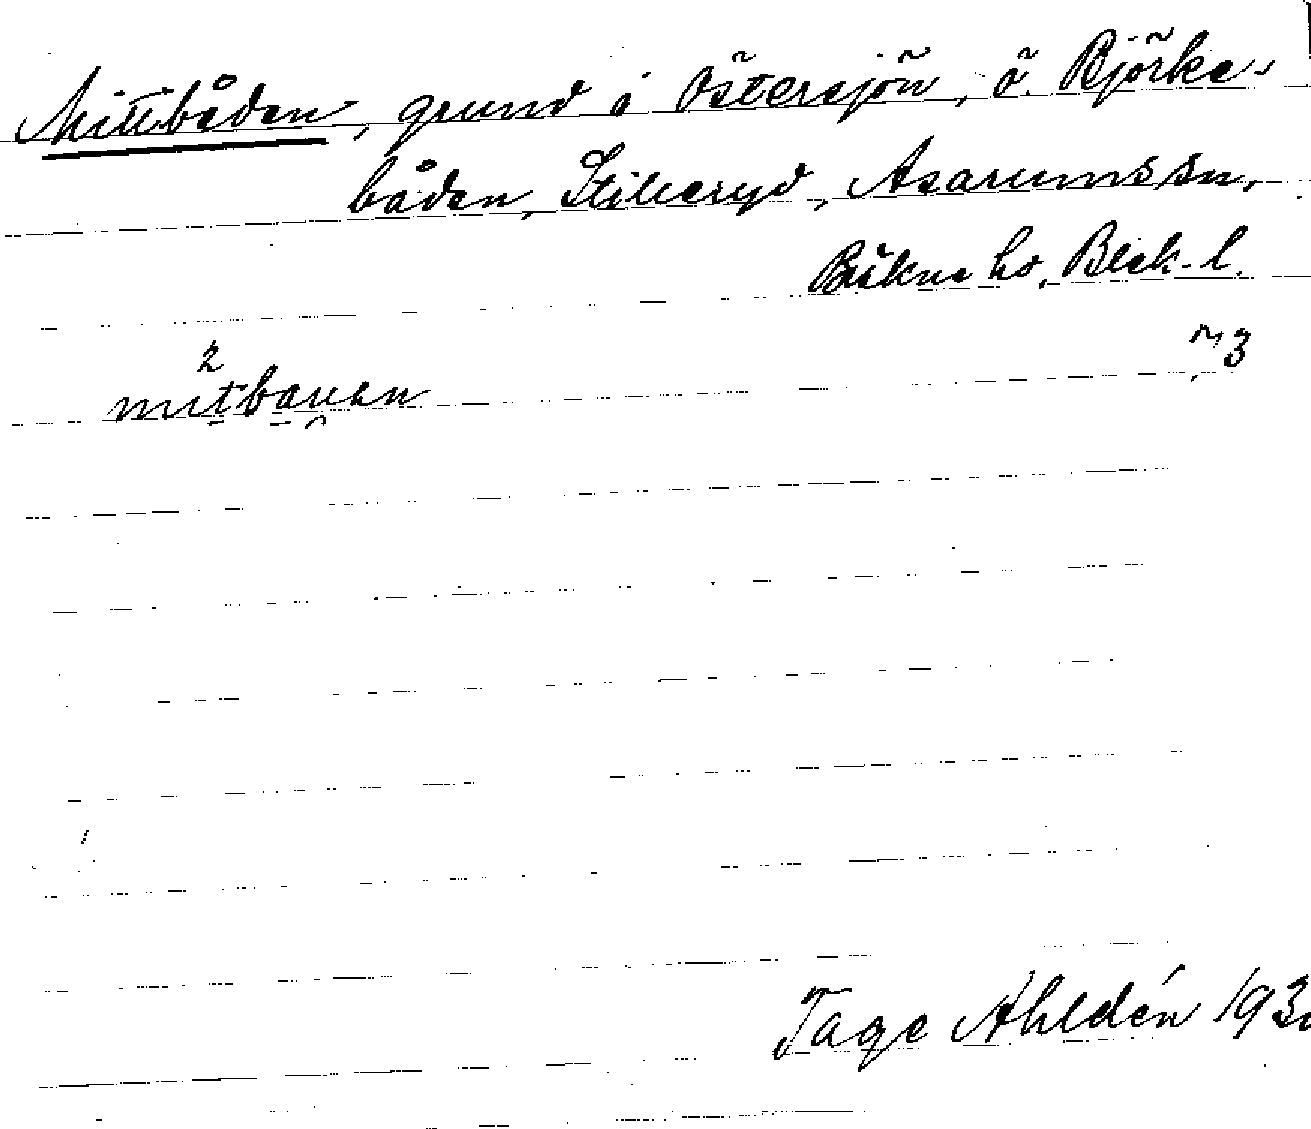 Mittbåden, grund i Östersjön, ö. Björke-
båden, Stilleryd, Asarums sn,
Bräkne hd, Blek. l.
M3
Tage Ahldén 193